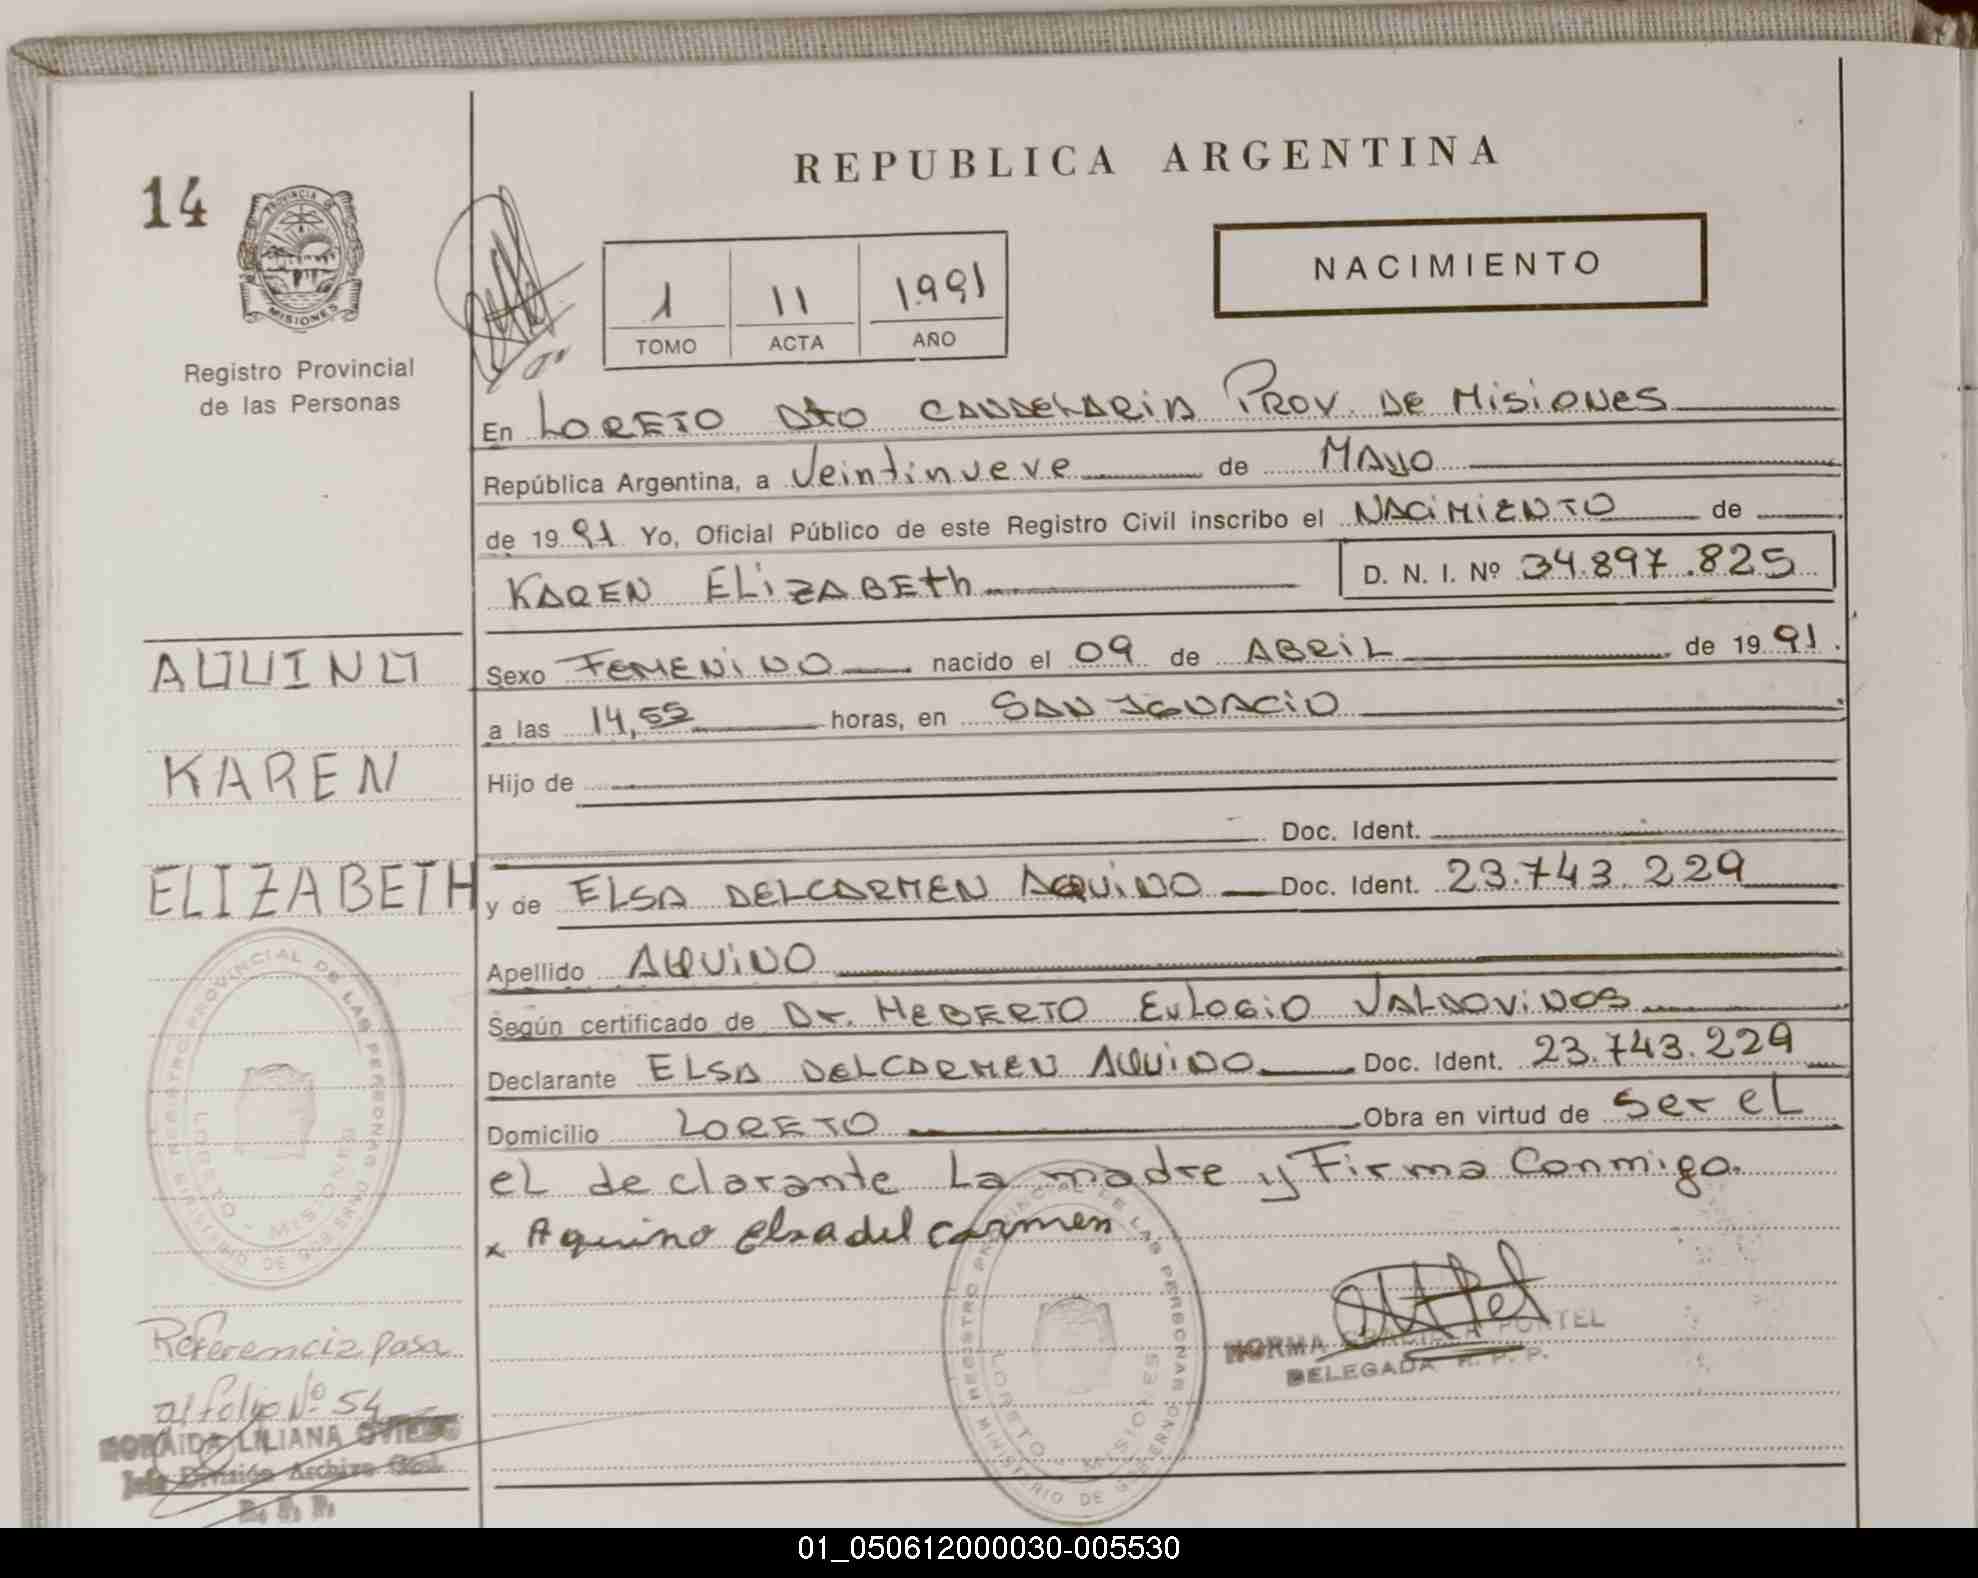 14
PROVINCIA DE
MISIONES
Registro Provincial
de las Personas
REPUBLICA ARGENTINA
NACIMIENTO
1 11 1991
TOMO ACTA AÑO
En LORETO Dto CANDELARIA PROV. DE MISIONES
República Argentina, a Veintinueve de MAYO
de 1991 Yo, Oficial Público de este Registro Civil inscribo el NACIMIENTO de
KAREN ELIZABETH D. N. I. Nº 34.897.825
AQUINO
KAREN
ELIZABETH
Sexo FEMENINO nacido el 09 de ABRIL de 1991.
a las 14,55 horas, en SAN IGNACIO
Hijo de
Doc. Ident.
y de ELSA DELCARMEN AQUINO Doc. Ident. 23.743.229
Apellido AQUINO
Según certificado de Dr. HEBERTO EULOGIO VALDOVINOS
Declarante ELSA DELCARMEN AQUINO Doc. Ident. 23.743.229
Domicilio LORETO Obra en virtud de Ser eL
eL declarante La madre y Firma Conmigo.
x Aquino Elsa del Carmen
REGISTRO PROVINCIAL DE LAS PERSONAS
MINISTERIO DE GOBIERNO
LORETO - MISIONES
REGISTRO PROVINCIAL DE LAS PERSONAS
MINISTERIO DE GOBIERNO
LORETO - MISIONES
NORMA GRACIELA PORTEL
DELEGADA R. P. P.
Referencia pasa
al folio Nº 54
ZORAIDA LILIANA OVIEDO
Jefe División Archivo Gral.
R. P. P.
01_050612000030-005530